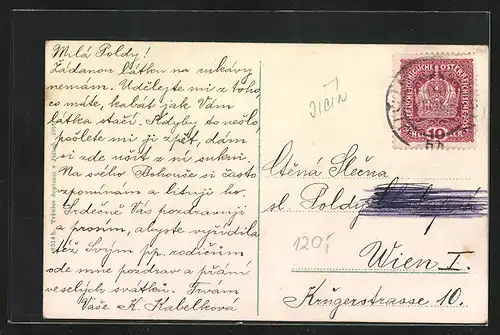 Milá Poldy!
Žádanou látku na rukávy
nemám. Udělejte mi z toho
co máte, kabát jak Vám
látka stačí. Kdyby to nešlo,
pošlete mi ji zpět, dám
si zde ušít z ní sukni.
Na svého Bohouše si často
vzpomínám a lituji ho.
Srdečně Vás pozdravuji
a prosím, abyste vyřídila
též Svým pp. rodičům
ode mne pozdrav a přání
veselých svátků. Trvám
Vaše K. Kabelková
JIČÍN
120,-
10
Ctěná Slečna
sl. Poldy
Wien I.
Krügerstrasse 10.